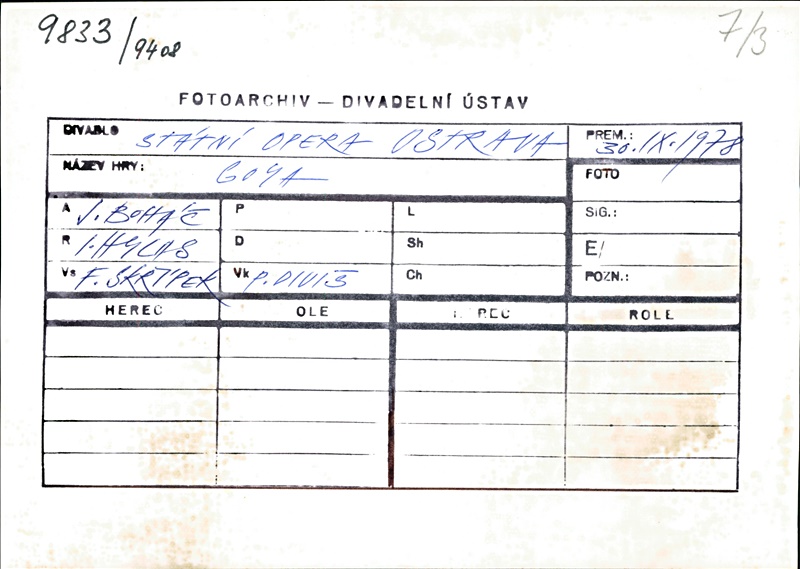 9833/9408
7/3
FOTOARCHIV — DIVADELNÍ ÚSTAV
DIVADLO STÁTNÍ OPERA OSTRAVA PREM.: 30.IX.1978
NÁZEV HRY: GOYA FOTO
A J. BOHÁČ P L SIG.:
R I. HYLAS D Sh E/
Vs F. SKŘÍPEK Vk P. DIVIŠ Ch POZN.:
HEREC OLE REC ROLE